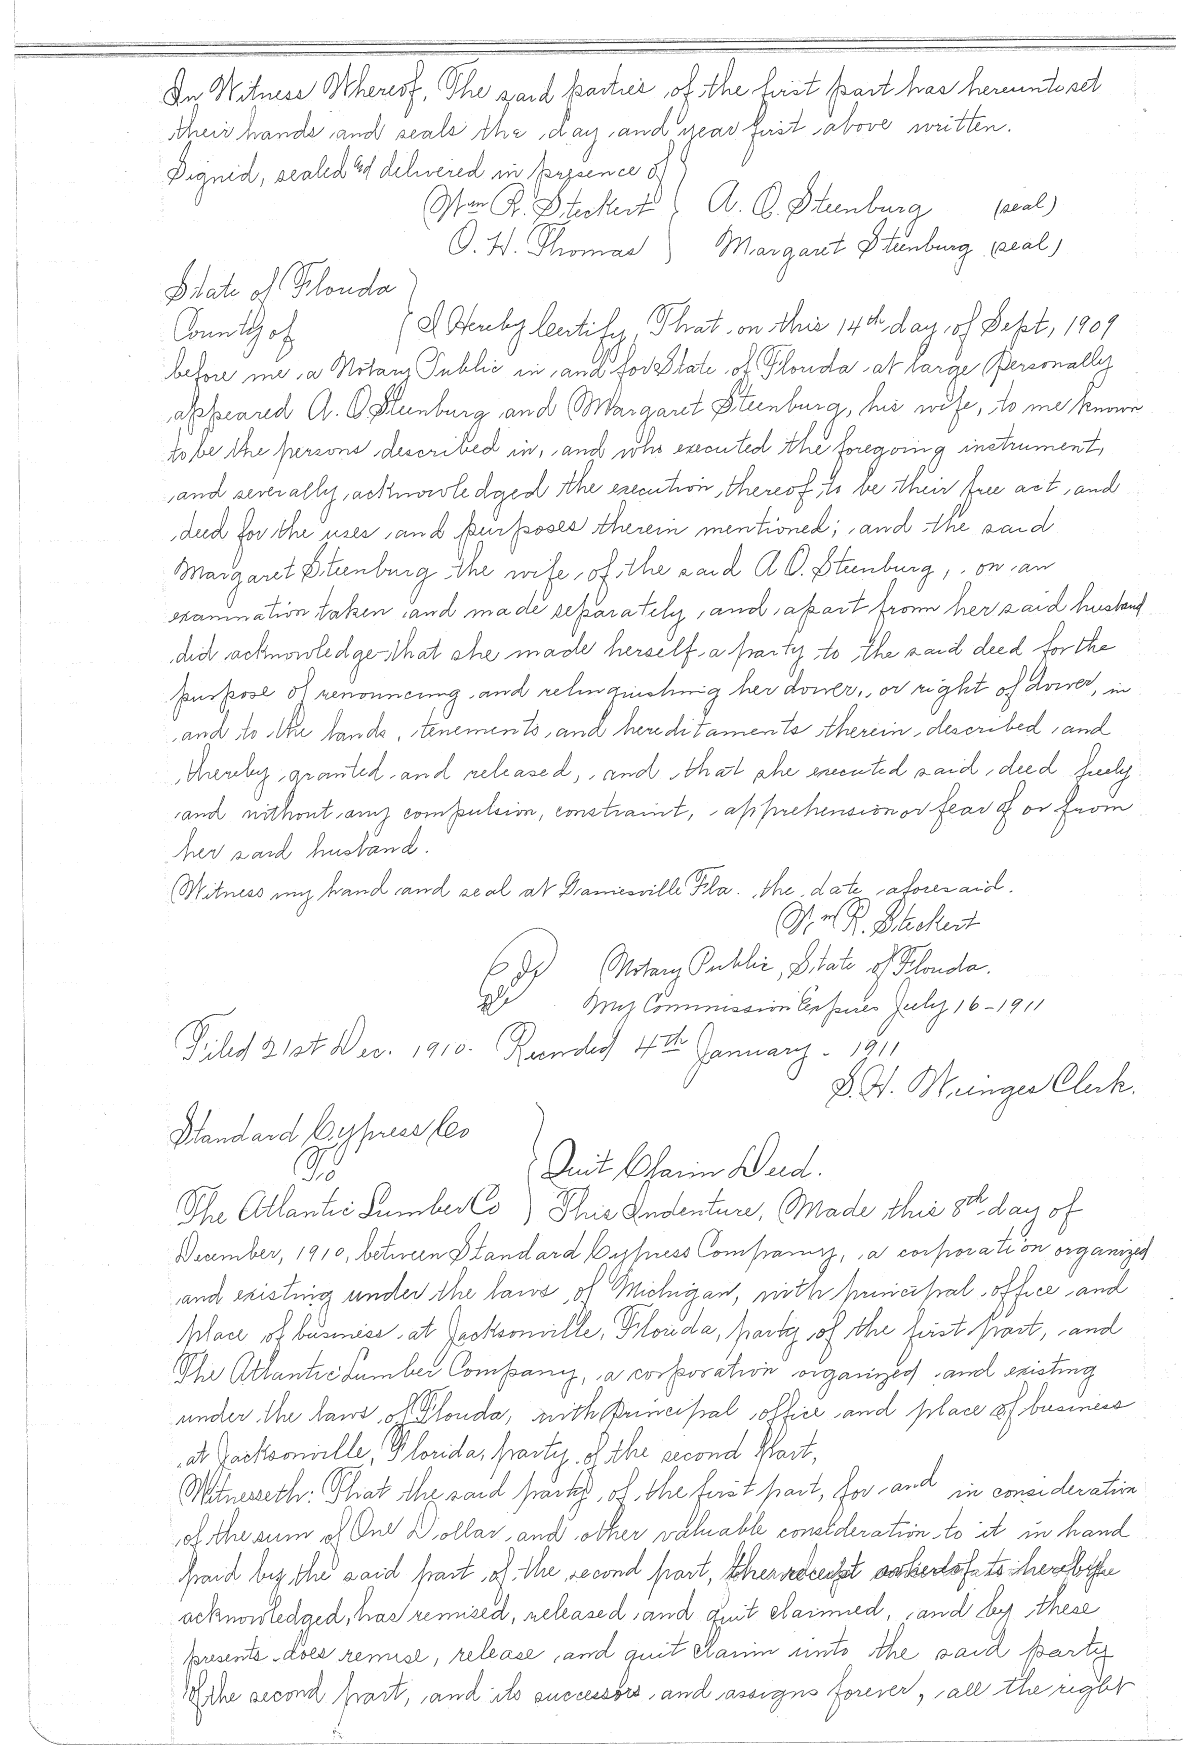 In Witness Whereof, The said parties of the first part has hereunto set
their hands and seals the day and year first above written.
Signed, sealed and delivered in presence of
Wm R. Steckert A. O. Steenburg (seal)
O. H. Thomas Margaret Steenburg (seal)
State of Florida
County of I Hereby Certify, That on this 14th day of Sept, 1909
before me a Notary Public in and for State of Florida at large Personally
appeared A. O Steenburg and Margaret Steenburg, his wife, to me known
to be the persons described in, and who executed the foregoing instrument,
and severally acknowledged the execution thereof to be their free act and
deed for the uses and purposes therein mentioned; and the said
Margaret Steenburg the wife of the said A O. Steenburg, on an
examination taken and made separately and apart from her said husband
did acknowledge that she made herself a party to the said deed for the
purpose of renouncing and relinquishing her dower, or right of dower, in
and to the lands, tenements and hereditaments therein described and
thereby granted and released, and that she executed said deed freely
and without any compulsion, constraint, apprehension or fear of or from
her said husband.
Witness my hand and seal at Gainesville Fla. the date aforesaid.
Wm R. Steckert
Notary Public, State of Florida.
My Commission Expires July 16-1911
Filed 21st Dec. 1910. Recorded 4th January - 1911
S. H. Wienges Clerk.
Standard Cypress Co
To Quit Claim Deed.
The Atlantic Lumber Co This Indenture, Made this 8th day of
December, 1910, between Standard Cypress Company, a corporation organized
and existing under the laws of Michigan, with principal office and
place of business at Jacksonville, Florida, party of the first part, and
The Atlantic Lumber Company, a corporation organized and existing
under the laws of Florida, with principal office and place of business
at Jacksonville, Florida, party of the second part,
Witnesseth: That the said party of the first part, for and in consideration
of the sum of One Dollar and other valuable consideration to it in hand
paid by the said part of the second part, the receipt whereof is hereby
acknowledged, has remised, released and quit claimed, and by these
presents does remise, release and quit claim unto the said party
of the second part, and its successors and assigns forever, all the right